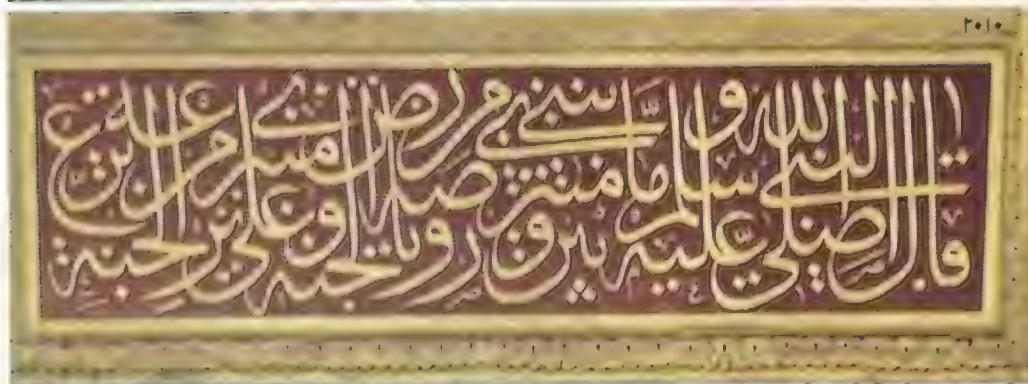 ٢٠١٠
قال النبي صلى الله عليه وسلم ما بين منبري روضة من رياض الجنة على ترعة من ترع الجنة